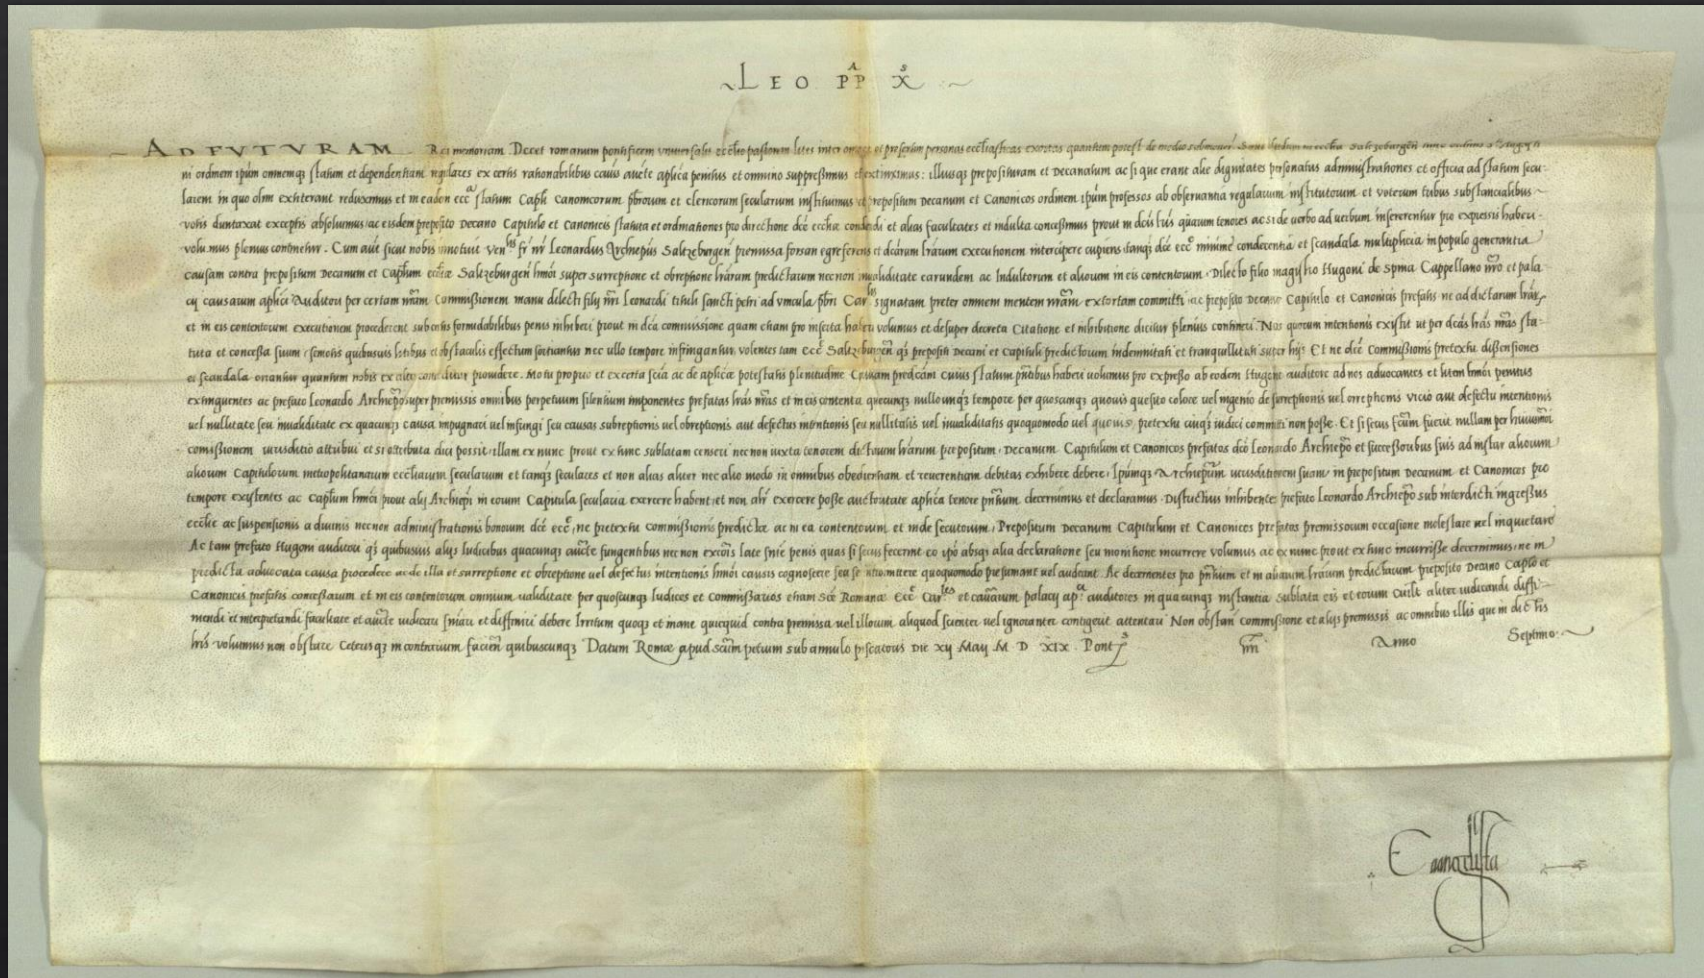 LEO PP̂ẠS X
AD FVTVRAM Rei memoriam. Decet romanum pontificem universalis ecclie pastorem lites inter et presertim personas ecclesiasticas exortas quantum potest de medio
ni ordinem ipũm omnemqȝ statum et dependentiam regulares ex certis rationabilibus causis aucte aplica penitus et omnino suppressimus et extinximus: illiusqȝ preposituram et Decanatum ac si que erant alie dignitates personatus administrationes et officia ad statum secu-
larem in quo olim extiterant reduximus et in eadem ecc̃a statum Capli Canonicorum pb̃rorum et clericorum secularium instituimus et prepositum Decanum et Canonicos ordinem ipũm professos ab observantia regularium institutorum et votorum tribus substancialibus
votis duntaxat exceptis absolvimus ac eisdem preposito Decano Capitulo et Canonicis statuta et ordinationes pro directione dc̃e ecclie condendi et alias facultates et indulta concessimus prout in dc̃is lr̃is quarum tenores ac si de verbo ad verbum insererentur pro expressis haberi
volumus plenius continetur. Cum aũt sicut nobis innotuit Ven^lis fr̃ nr̃ Leonardus Archiep̃us Saltzeburgeñ premissa forsan egre ferens et dc̃arum lr̃arum executionem intercipere cupiens tanqȝ dc̃e ecc̃e minime condecentia et scandala multiplicia in populo generantia
causam contra prepositum Decanum et Caplum ecclie Saltzeburgeñ hm̃oi super surreptione et obreptione lr̃arum predictarum necnon invaliditate earundem ac Indultorum et aliorum in eis contentorum. Dilecto filio magistro Hugoni de spina Cappellano nr̃o et pala-
cij causarum aplici Auditori per certam nr̃am Commissionem manu dilecti filij nr̃i Leonardi tituli sancti petri ad vincula pb̃ri Car^lis signatam preter omnem mentem nr̃am extortam committi ac preposito Decano Capitulo et Canonicis prefatis ne ad dictarum lr̃arȝ
et in eis contentorum executionem procederent sub certis formidabilibus penis inhiberi prout in dc̃a commissione quam etiam pro inserta haberi volumus et desuper decreta Citatione et inhibitione dicitur plenius contineri. Nos quorum intentionis existit ut per dc̃as lr̃as nr̃as sta-
tuta et concessa suum remotis quibusvis litibus et obstaculis effectum sortiantur nec ullo tempore infringantur, volentes tam ecc̃e Saltzeburgeñ qȝ prepositi Decani et Capituli predictorum indemnitati et tranquillitati super hijs Et ne dc̃e Commissionis pretextu dissensiones
et scandala oriantur quantum nobis ex alto conceditur providere. Motu proprio et ex certa scĩa ac de aplice potestatis plenitudine Causam predc̃am cuius statum pñtibus haberi volumus pro expresso ab eodem Hugone auditore ad nos advocantes et litem hm̃oi penitus
extinguentes ac prefato Leonardo Archiep̃o super premissis omnibus perpetuum silentium imponentes prefatas lr̃as nr̃as et in eis contenta quecunqȝ nullo unqȝ tempore per quoscunqȝ quovis quesito colore vel ingenio de surreptionis vel orreptionis vicio aut defectu intentionis
vel nullitate seu invaliditate ex quacunqȝ causa impugnari vel infringi seu causas subreptionis vel obreptionis aut defectus intentionis seu nullitatis vel invaliditatis quoquomodo vel quovis pretextu cuiqȝ iudici committi non posse. Et si secus fc̃um fuerit nullam per huiusmõi
comissionem iurisditio attributi et si attributa dici possit illam ex nunc prout ex tunc sublatam censeri necnon iuxta tenorem dictarum lr̃arum prepositum, Decanum Capitulum et Canonicos prefatos dc̃o Leonardo Archiep̃o et successoribus suis ad instar aliorum
aliorum Capitulorum metropolitanarum eccliarum secularium et tanqȝ seculares et non alias aliter nec alio modo in omnibus obedientiam et reverentiam debitas exhibere debere, Ipumqȝ Archiep̃um iurisditionem suam in prepositum Decanum et Canonicos pro
tempore existentes ac Caplum hm̃oi prout alij Archiep̃i in eorum Capitula secularia exercere habent, et non alr̃ exercere posse auctoritate aplica tenore pñtium decernimus et declaramus. Districtius inhibentes prefato Leonardo Archiep̃o sub interdicti ingressus
ecclie ac suspensionis a divinis necnon administrationis bonorum dc̃e ecc̃e, ne pretextu commissionis predicte ac in ea contentorum et inde secutorum, Prepositum Decanum Capitulum et Canonicos prefatos premissorum occasione molestare vel inquietare
Ac tam prefato Hugoni auditori qȝ quibusvis alijs Iudicibus quacunqȝ aucte fungentibus necnon excõis late snĩe penis quas si secus fecerint eo ip̃o absqȝ alia declaratione seu monitione incurrere volumus ac ex nunc prout ex tunc incurrisse decernimus, ne in
predicta advocata causa procedere ac de illa et surreptione et obreptione vel defectus intentionis hm̃oi causis cognoscere seu se intromittere quoquomodo presumant vel audeant. Ac decernentes pro pñtium et in aliarum lr̃arum predictarum preposito Decano Caplo et
Canonicis prefatis concessarum et in eis contentorum omnium validitate per quoscunqȝ Iudices et commissarios etiam Scẽ Romane Ecc̃e Car^les et causarum palacij ap^ci auditores in quacunqȝ instantia sublata eis et eorum cuilt̃ aliter iudicandi diffi-
niendi et interpretandi facultate et aucte iudicari snĩari et diffiniri debere Irritum quoqȝ et inane quicquid contra premissa vel illorum aliquod scienter vel ignoranter contigerit attentari Non obstañ commissione et alijs premissis ac omnibus illis que in dictis
lr̃is volumus non obstare Ceterisqȝ in contrarium facieñ quibuscunqȝ Datum Rome apud sc̃um petrum sub annulo piscatoris Die xij May M D XIX. Pont^s nr̃i Anno Septimo.
Evangelista